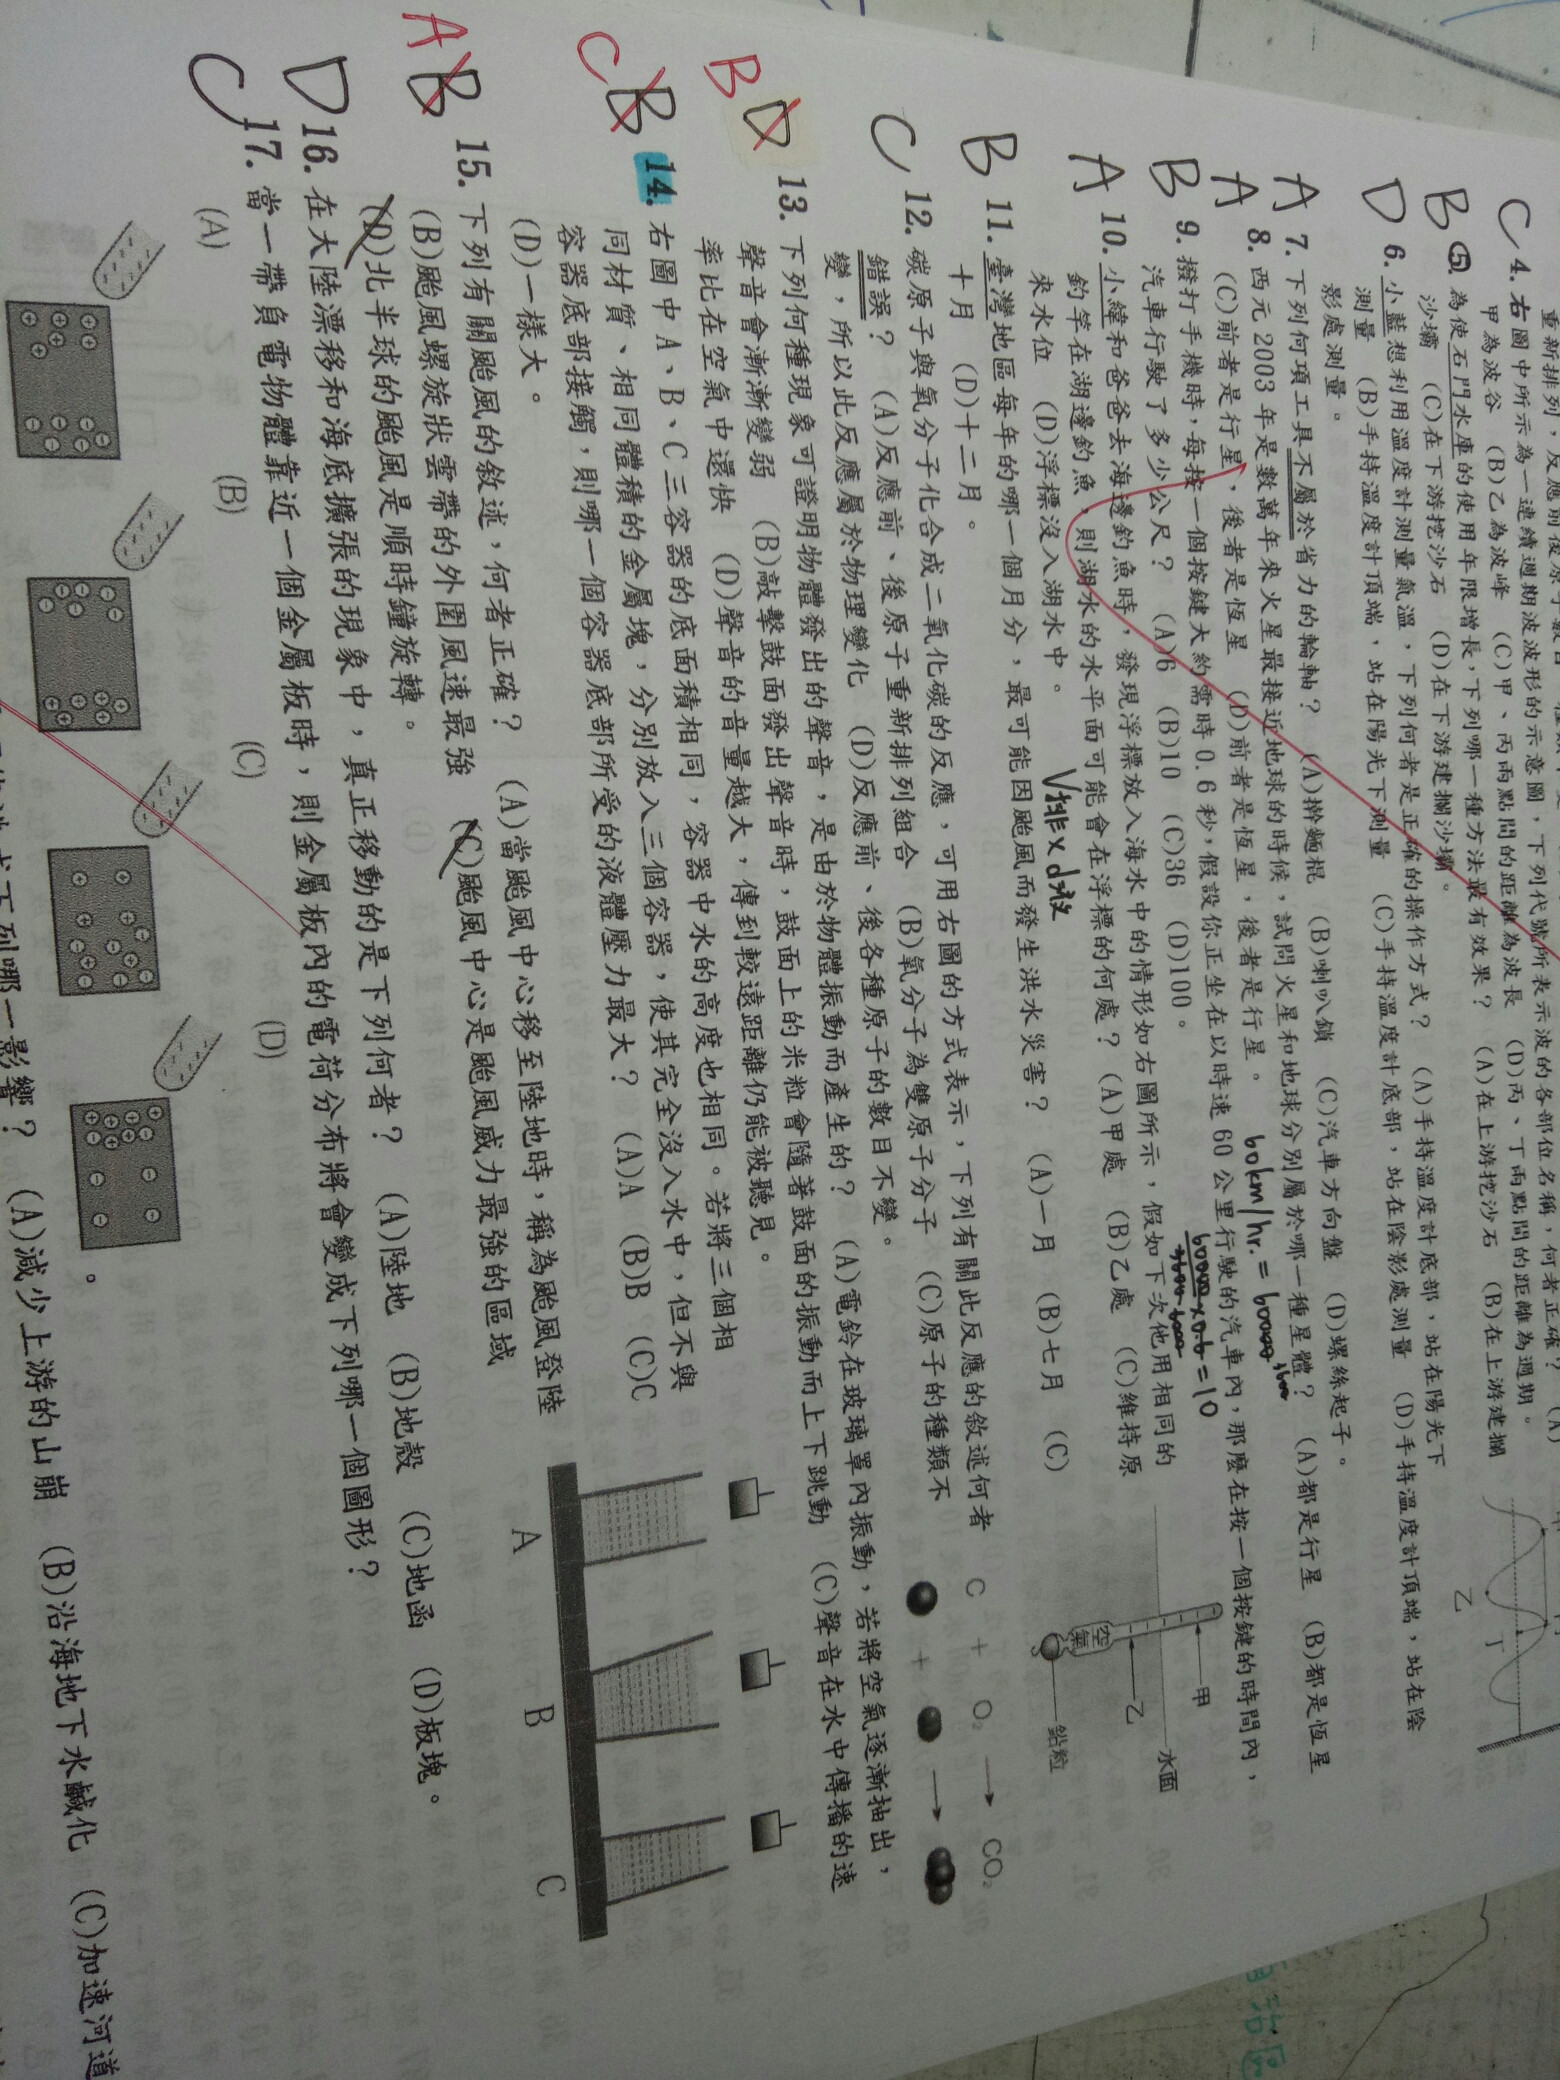 C 4. 右圖中所示為一連續週期波波形的示意圖，下列代號所表示波的各部位名稱，何者正確？ (A)
甲為波谷 (B)乙為波峰 (C)甲、丙兩點間的距離為波長 (D)丙、丁兩點間的距離為週期。
B 5. 為使石門水庫的使用年限增長，下列哪一種方法最有效果？ (A)在上游挖沙石 (B)在上游建攔
沙壩 (C)在下游挖沙石 (D)在下游建攔沙壩。
D 6. 小藍想利用溫度計測量氣溫，下列何者是正確的操作方式？ (A)手持溫度計底部，站在陽光下
測量 (B)手持溫度計頂端，站在陽光下測量 (C)手持溫度計底部，站在陰影處測量 (D)手持溫度計頂端，站在陰
影處測量。
A 7. 下列何項工具不屬於省力的輪軸？ (A)擀麵棍 (B)喇叭鎖 (C)汽車方向盤 (D)螺絲起子。
A 8. 西元 2003 年是數萬年來火星最接近地球的時候，試問火星和地球分別屬於哪一種星體？ (A)都是行星 (B)都是恆星
(C)前者是行星，後者是恆星 (D)前者是恆星，後者是行星。
60km/hr. = 60000
B 9. 撥打手機時，每按一個按鍵大約需時 0.6 秒，假設你正坐在以時速 60 公里行駛的汽車內，那麼在按一個按鍵的時間內，
汽車行駛了多少公尺？ (A)6 (B)10 (C)36 (D)100。
60000 × 0.6 = 10
A 10. 小緯和爸爸去海邊釣魚時，發現浮標放入海水中的情形如右圖所示，假如下次他用相同的
釣竿在湖邊釣魚，則湖水的水平面可能會在浮標的何處？ (A)甲處 (B)乙處 (C)維持原
來水位 (D)浮標沒入湖水中。
V排×d液
甲
乙
水面
空氣
鉛粒
B 11. 臺灣地區每年的哪一個月分，最可能因颱風而發生洪水災害？ (A)一月 (B)七月 (C)
十月 (D)十二月。
C 12. 碳原子與氧分子化合成二氧化碳的反應，可用右圖的方式表示，下列有關此反應的敘述何者
錯誤？ (A)反應前、後原子重新排列組合 (B)氧分子為雙原子分子 (C)原子的種類不
變，所以此反應屬於物理變化 (D)反應前、後各種原子的數目不變。
C + O₂ → CO₂
+ →
B D 13. 下列何種現象可證明物體發出的聲音，是由於物體振動而產生的？ (A)電鈴在玻璃罩內振動，若將空氣逐漸抽出，
聲音會漸漸變弱 (B)敲擊鼓面發出聲音時，鼓面上的米粒會隨著鼓面的振動而上下跳動 (C)聲音在水中傳播的速
率比在空氣中還快 (D)聲音的音量越大，傳到較遠距離仍能被聽見。
C B 14. 右圖中 A、B、C 三容器的底面積相同，容器中水的高度也相同。若將三個相
同材質、相同體積的金屬塊，分別放入三個容器，使其完全沒入水中，但不與
容器底部接觸，則哪一個容器底部所受的液體壓力最大？ (A)A (B)B (C)C
(D)一樣大。
A B C
A B 15. 下列有關颱風的敘述，何者正確？ (A)當颱風中心移至陸地時，稱為颱風登陸
(B)颱風螺旋狀雲帶的外圍風速最強 (C)颱風中心是颱風威力最強的區域
(D)北半球的颱風是順時鐘旋轉。
D 16. 在大陸漂移和海底擴張的現象中，真正移動的是下列何者？ (A)陸地 (B)地殼 (C)地函 (D)板塊。
C 17. 當一帶負電物體靠近一個金屬板時，則金屬板內的電荷分布將會變成下列哪一個圖形？
(A) (B) (C) (D) 。
下列哪一影響？ (A)減少上游的山崩 (B)沿海地下水鹹化 (C)加速河道